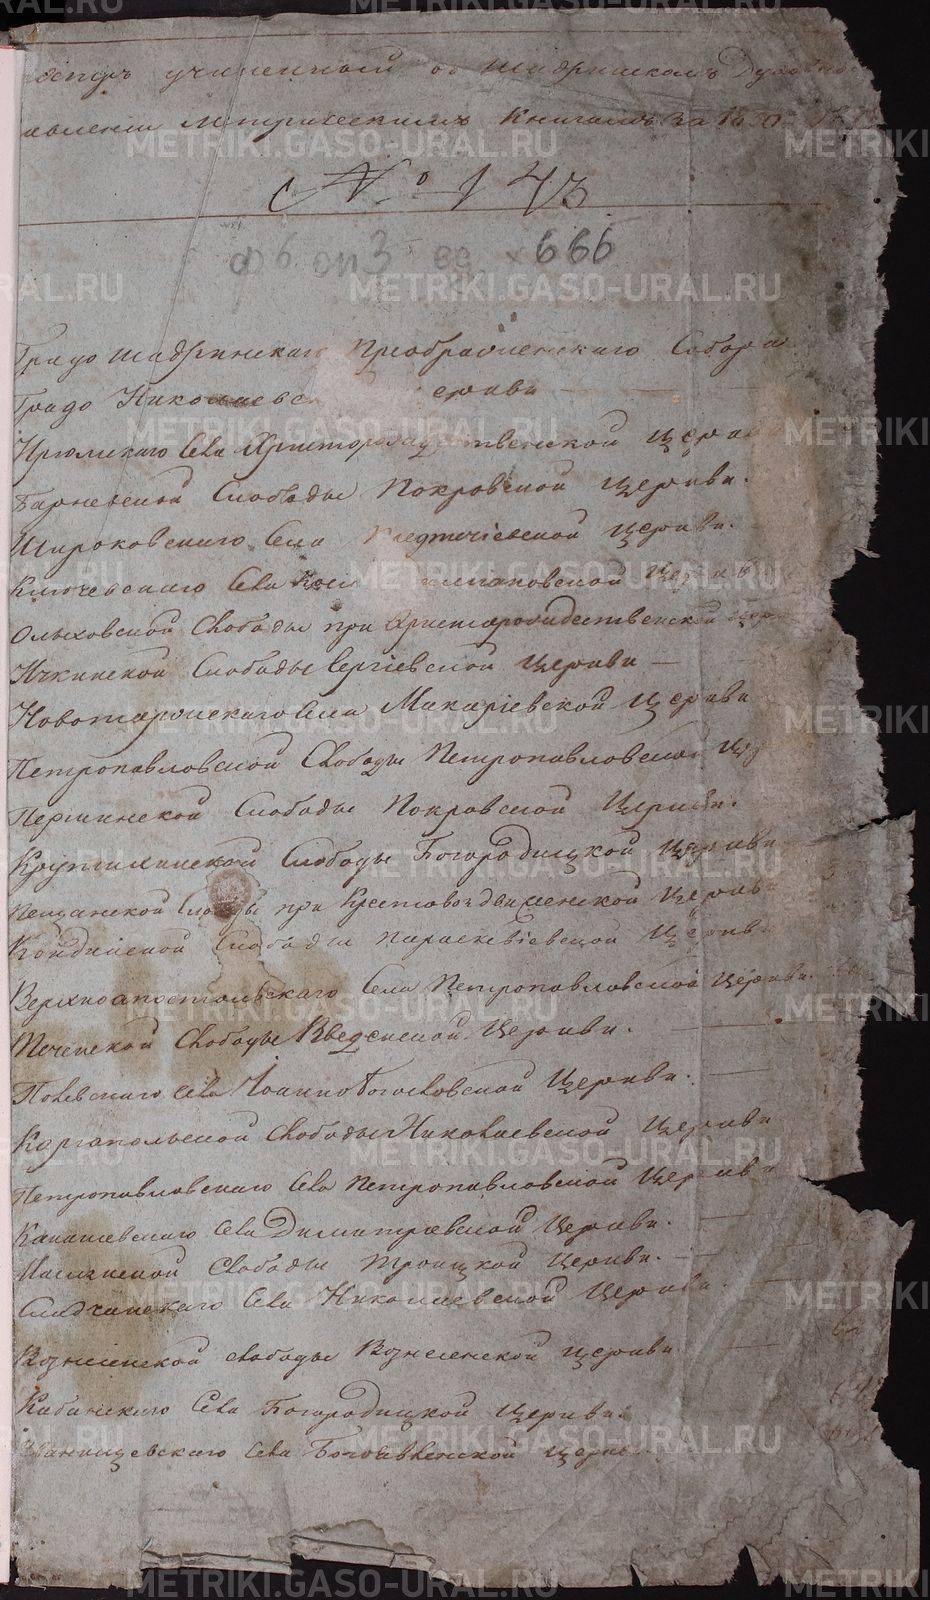 учиненный въ Шадринскомъ Духовно
авлении Метрическимъ Книгамъ за 1830
№ 143
ф6 оп3 ед х 666
Градо Шадринскаго Преображенскаго Собора
Градо Николаевс еркви
Ирюмскаго Села Христорождественской Церкви
Барневской Слободы Покровской Церкви.
Широковскаго Села Предтечевской Церкви.
Ключевскаго Села Косм Церкв
Ольховской Слободы при Христорождественской Церк
Ичкинской Слободы Сергіевской Церкви
Новоторопскаго Села Макаріевской Церкви
Петропавловской Слободы Петропавловской Це
Першинской Слободы Покровской Церкви.
Крутихинской Слободы Богородицкой Церкви
Пещанской Слободы при Крестовоздвиженской Церкви
Кондинской Слободы Параскевіевской Церкв
Верхноапостольскаго Села Петропавловской Церкви.
Теченской Слободы Введенской Церкви.
Полевскаго Села Іоанно Богословской Церкви.
Каргопольской Слободы Николаевской Церкви
Петропавловскаго Села Петропавловской Церкви
Канашевскаго Села Димитріевской Церкви.
Маслянской Слободы Троицкой Церкви.
Сладчанскаго Села Николаевской Церкви.
Воznесенской слободы Вознесенской церкви
Кабанскаго Села Богородицкой Церкви.
Иванищевскаго Села Богоявленской Церкв
METRIKI.GASO-URAL.RU